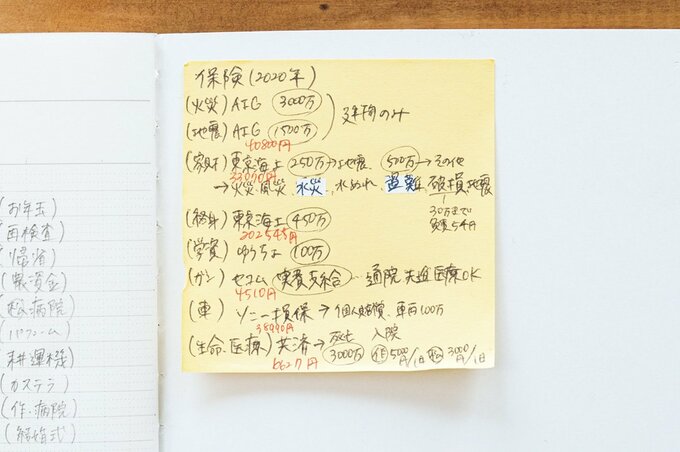 保険(2020年)
(火災) AIG 3000万
(地震) AIG 1500万
建物のみ
40800円
(家財) 東京海上 250万→地震、500万→その他
33070円
→火災、風災、水災、水ぬれ、盗難、破損、地震
30万まで
免責5千円
(終身) 東京海上 450万
202545円
(学資) ゆうちょ 100万
(ガン) セコム 実費支給 通院 先進医療OK
4510円
(車) ソニー損保→個人賠償、車両100万
38990円
(生命、医療) 共済→死亡 3000万
入院
作 5000円/1日 松 3000円/1日
6627円
(お年玉)
(再検査)
(帰省)
松病院)
(耕運機)
(カステラ)
(作・病院)
(結婚式)